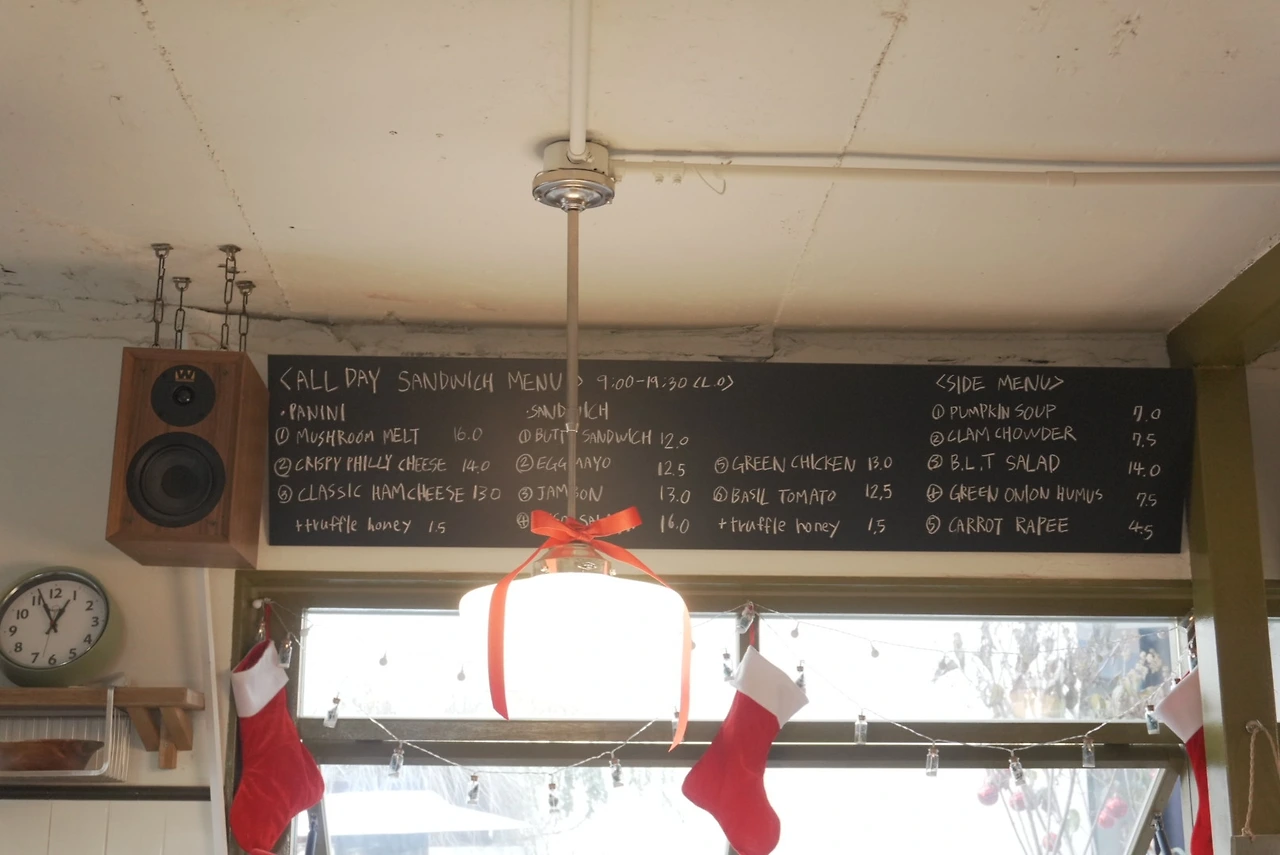 <ALL DAY SANDWICH MENU> 9:00-19:30 (L.O)
·PANINI
① MUSHROOM MELT 16.0
② CRISPY PHILLY CHEESE 14.0
③ CLASSIC HAMCHEESE 13.0
+truffle honey 1.5
·SANDWICH
① SANDWICH 12.0
② EGG MAYO 12.5
③ JAMBON 13.0
④ 16.0
⑤ GREEN CHICKEN 13.0
⑥ BASIL TOMATO 12,5
+truffle honey 1.5
<SIDE MENU>
① PUMPKIN SOUP 7.0
② CLAM CHOWDER 7.5
③ B.L.T SALAD 14.0
④ GREEN ONION HUMUS 7.5
⑤ CARROT RAPEE 4.5
W
12
1
2
3
4
5
6
7
8
9
10
11